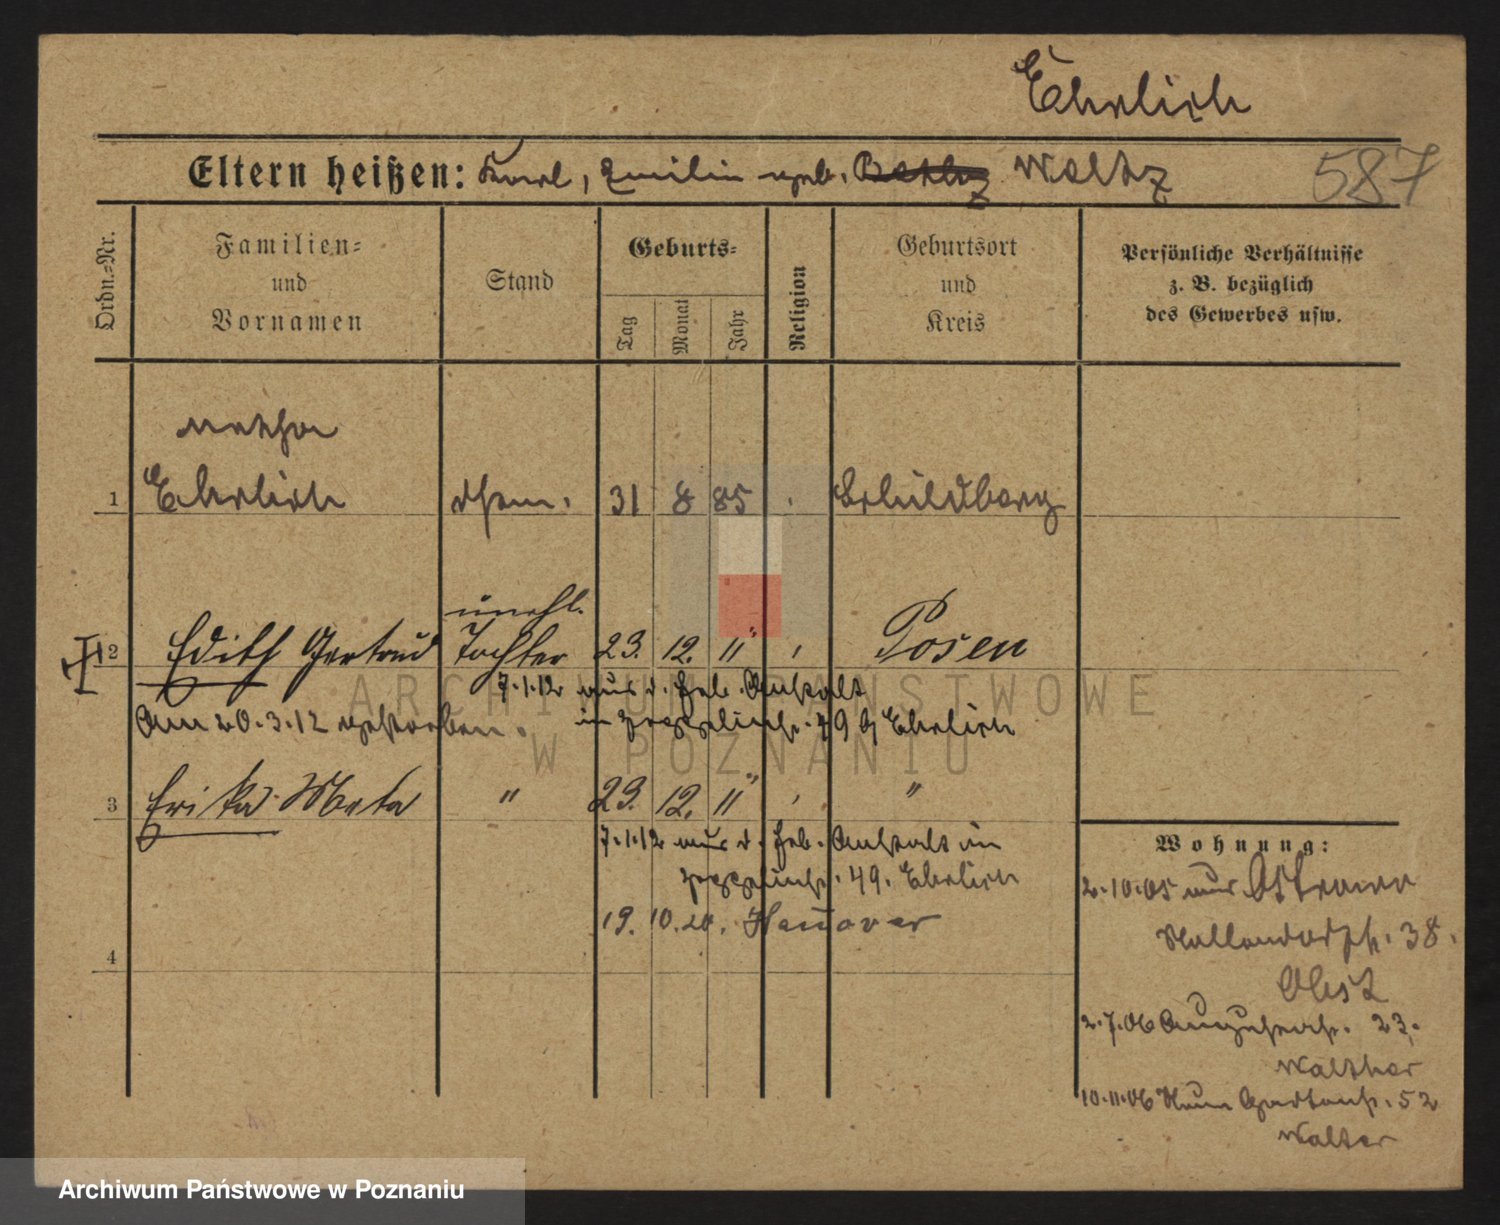 Ehrlich
Eltern heißen: Karl, Emilie geb. Waltz 587
Ordn.=Nr.
Familien=
und
Vornamen
Stand
Geburts=
Tag
Monat
Jahr
Religion
Geburtsort
und
Kreis
Persönliche Verhältnisse
z. B. bezüglich
des Gewerbes usw.
Martha
1 Ehrlich 31 8 85 Schildberg
unehl.
2 Edith Gertrud Tochter 23. 12. 11 " Posen
7.1.12 aus d. Heb. Anstalt
Am 20.3.12 gestorben. in 49 b/ Ehrlich
3 Erika Meta " 23. 12. 11 " "
7.1.12 aus d. Heb. Anstalt in
49. Ehrlich
19. 10. 20. Hanover
4
Wohnung:
2.10.05 aus Ostrowo
38.
Obst
2.7.06 Augustastr. 23.
Walther
10.11.06 Neue Gartenstr. 52
Walter
ARCHIWUM PAŃSTWOWE
W POZNANIU
Archiwum Państwowe w Poznaniu